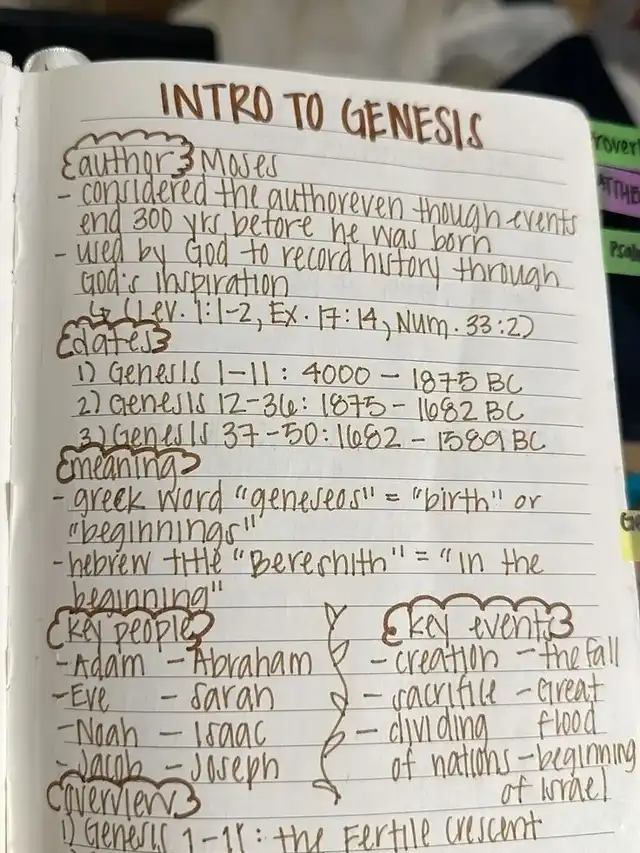 INTRO TO GENESIS
author Moses
- considered the author even though events
end 300 yrs before he was born
- used by God to record history through
God's inspiration
↳ (Lev. 1:1-2, Ex. 17:14, Num. 33:2)
dates
1) Genesis 1-11: 4000 - 1875 BC
2) Genesis 12-36: 1875 - 1682 BC
3) Genesis 37-50: 1682 - 1589 BC
meaning
- greek word "geneseos" = "birth" or
"beginnings"
- hebrew title "Bereshith" = "in the
beginning"
key people
- Adam - Abraham
- Eve - Sarah
- Noah - Isaac
- Jacob - Joseph
key events
- creation - the Fall
- sacrifice - Great
- dividing flood
of nations - beginning
of Israel
overview
1) Genesis 1-11: the Fertile Crescent